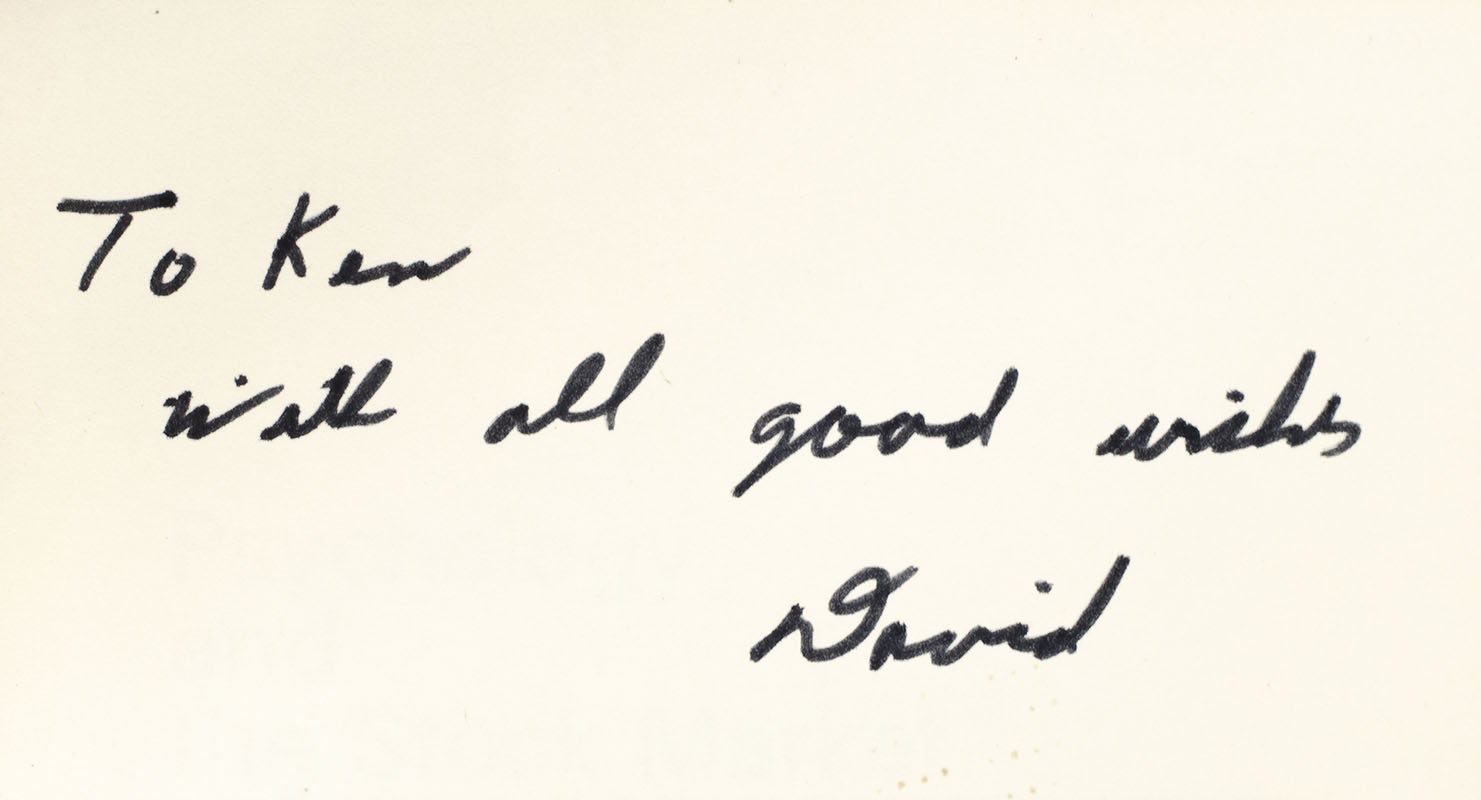 To Ken
with all good wishes
David